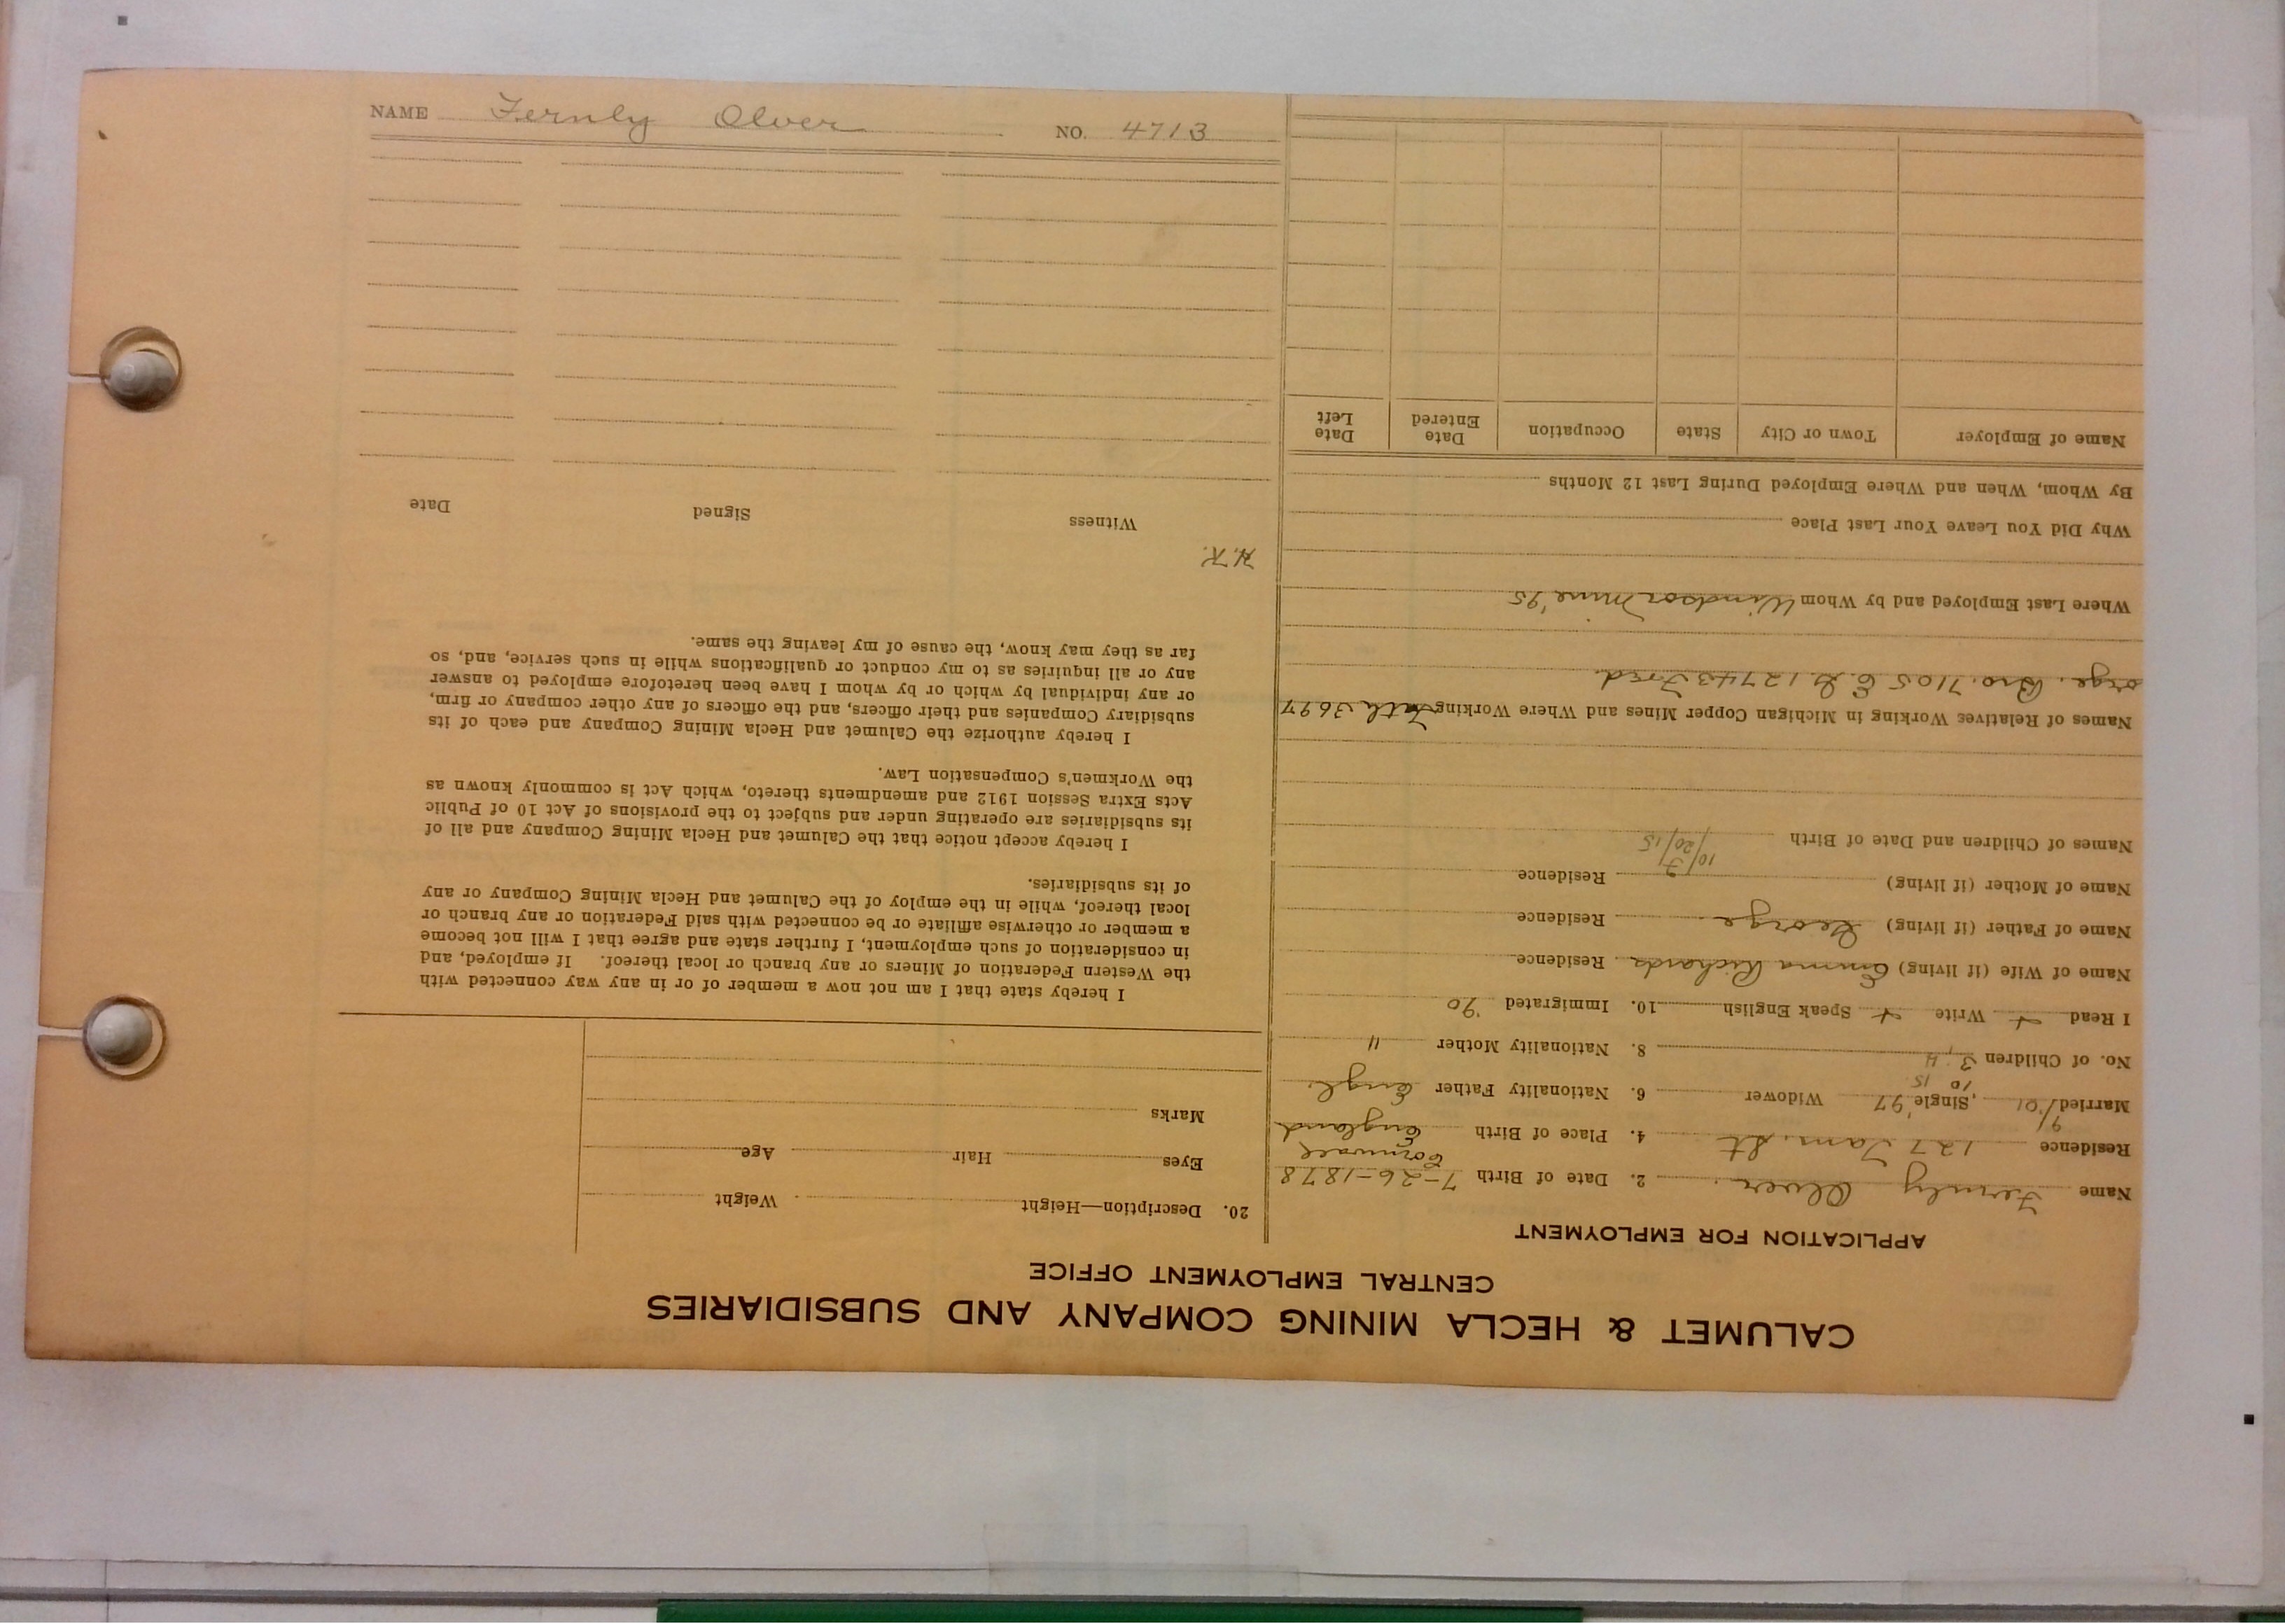 NAME Fernly Olver NO. 4713
CALUMET & HECLA MINING COMPANY AND SUBSIDIARIES
CENTRAL EMPLOYMENT OFFICE
APPLICATION FOR EMPLOYMENT
Name Fernly Olver. 2. Date of Birth 7-26-1878
Cornwall
Residence 127 Tam. St 4. Place of Birth England
9/
Married/'01 , Single '97 Widower 6. Nationality Father Engl.
10 15
No. of Children 3, 4 8. Nationality Mother "
I Read + Write + Speak English 10. Immigrated '90
Name of Wife (if living) Emma Richards. Residence
Name of Father (if living) George. Residence
Name of Mother (if living) Residence
10/20/15
Names of Children and Date of Birth
Names of Relatives Working in Michigan Copper Mines and Where Working Fath 3697
orge. Bro. 7105 C.L. 12743 Fred.
Where Last Employed and by Whom Windsor Mine '95
Why Did You Leave Your Last Place
By Whom, When and Where Employed During Last 12 Months
Name of Employer Town or City State Occupation Date Entered Date Left
20. Description—Height Weight
Eyes Hair Age
Marks
I hereby state that I am not now a member of or in any way connected with
the Western Federation of Miners or any branch or local thereof. If employed, and
in consideration of such employment, I further state and agree that I will not become
a member or otherwise affiliate or be connected with said Federation or any branch or
local thereof, while in the employ of the Calumet and Hecla Mining Company or any
of its subsidiaries.
I hereby accept notice that the Calumet and Hecla Mining Company and all of
its subsidiaries are operating under and subject to the provisions of Act 10 of Public
Acts Extra Session 1912 and amendments thereto, which Act is commonly known as
the Workmen's Compensation Law.
I hereby authorize the Calumet and Hecla Mining Company and each of its
subsidiary Companies and their officers, and the officers of any other company or firm,
or any individual by which or by whom I have been heretofore employed to answer
any or all inquiries as to my conduct or qualifications while in such service, and, so
far as they may know, the cause of my leaving the same.
H.K.
Witness Signed Date